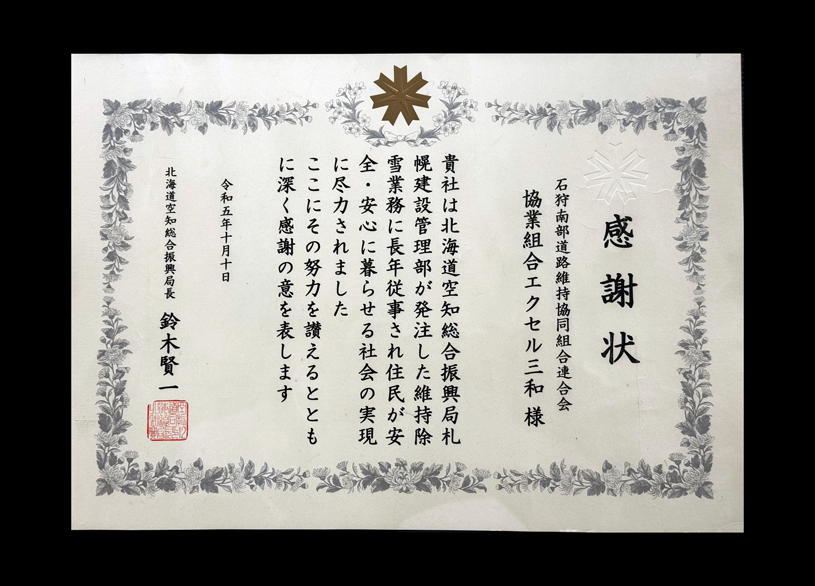 感謝状
石狩南部道路維持協同組合連合会
協業組合エクセル三和様
貴社は北海道空知総合振興局札
幌建設管理部が発注した維持除
雪業務に長年従事され住民が安
全・安心に暮らせる社会の実現
に尽力されました
ここにその努力を讃えるととも
に深く感謝の意を表します
令和五年十月十日
北海道空知総合振興局長 鈴木賢一